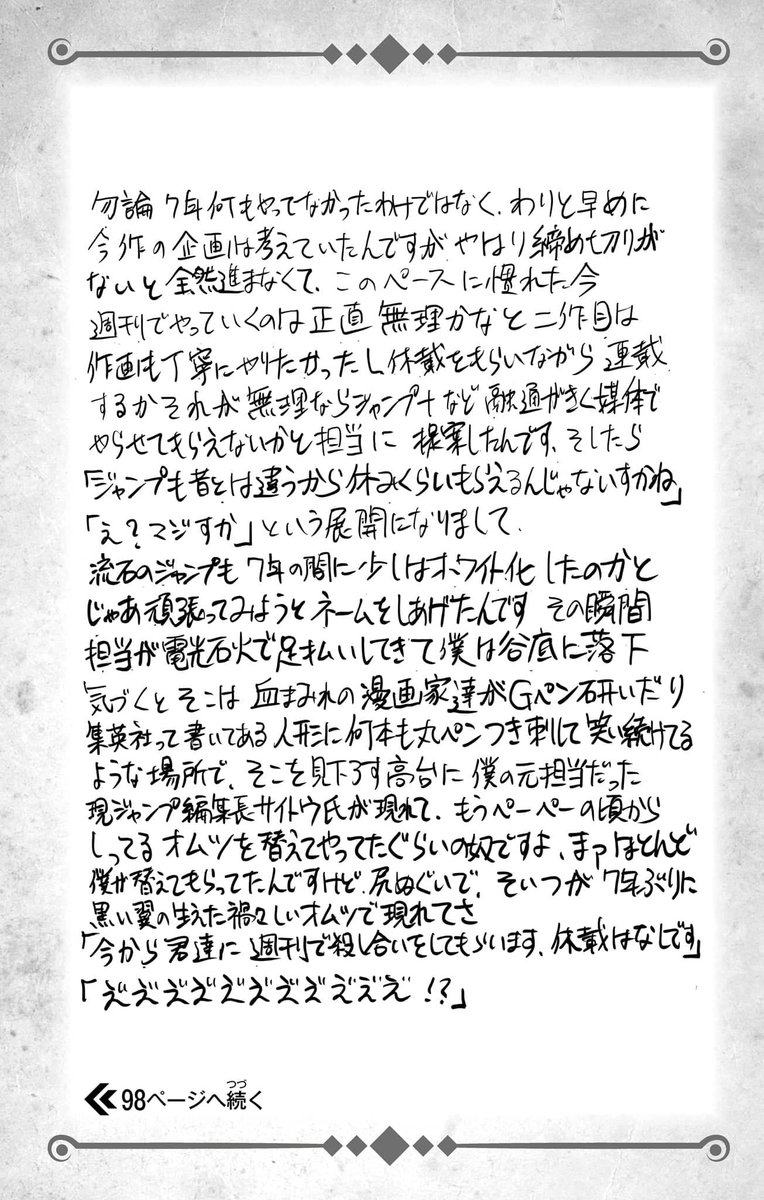 勿論 7年何もやってなかったわけではなく、わりと早めに
今作の企画は考えていたんですが やはり締め切りが
ないと全然進まなくて、このペースに慣れた今
週刊でやっていくのは正直無理かなと二作目は
作画も丁寧にやりたかったし休載をもらいながら連載
するかそれが無理ならジャンプ+など融通がきく媒体で
やらせてもらえないかと担当に提案したんです、そしたら
「ジャンプも昔とは違うから休みくらいもらえるんじゃないすかね」
「え?マジすか」という展開になりまして、
流石のジャンプも7年の間に少しはホワイト化したのかと
じゃあ頑張ってみようとネームをしあげたんです その瞬間
担当が電光石火で足払いしてきて僕は谷底に落下
気づくとそこは血まみれの漫画家達がGペン研いだり
集英社って書いてある人形に何本も丸ペンつき刺して笑い続けてる
ような場所で、そこを見下ろす高台に僕の元担当だった
現ジャンプ編集長サイトウ氏が現れて、もうペーペーの頃から
しってるオムツを替えてやってたぐらいの奴ですよ、まァほとんど
僕が替えてもらってたんですけど、尻ぬぐいで、そいつが7年ぶりに
黒い翼の生えた禍々しいオムツで現れてさ
「今から君達に週刊で殺し合いをしてもらいます、休載はなしです」
「え゛え゛え゛え゛え゛え゛え゛え゛え゛え゛え゛!?」
98ページへ続く